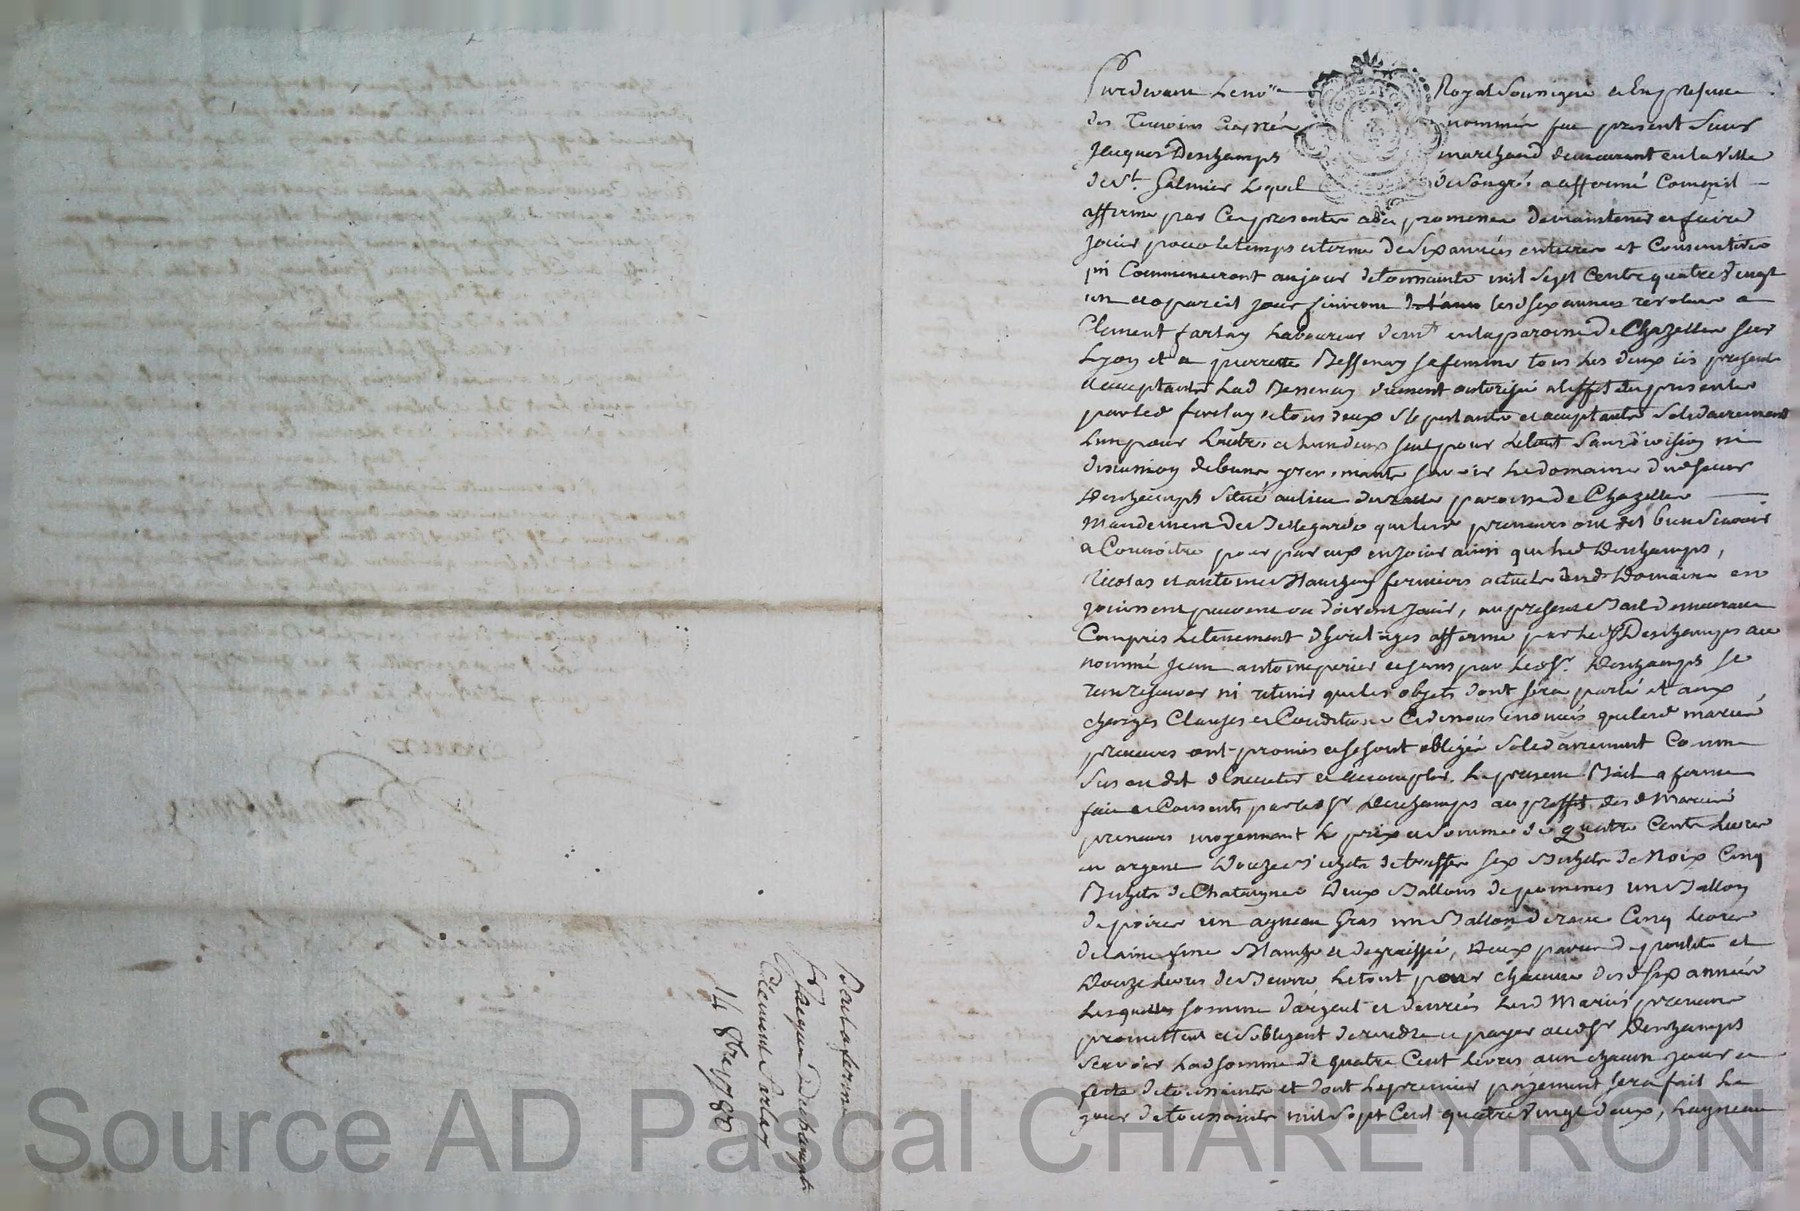 Pardevant Le no.re Royal Soussigné et En presence
des Temoins cy apres nommés fut present Sieur
Jacques Deschamps marchand demeurant en la Ville
de St. Galmier Lequel de son gré a affermé Comme il
afferme par Ces presentes avec promesse de maintenir et faire
Jouir pour le temps et terme de six années entieres et Consecutives
qui Commenceront au jour de toussaints mil Sept Cents quatre Vingt
un et a pareil Jour finiront lesd. six années revolues a
Clement farlay Laboureur dem.t en la paroisse de Chazelles sur
Lyon et a pierrette Bessenay sa femme tous Les deux icy presents
et acceptants Lad. Bessenay dument autorisée a l'effet des presentes
par led. farlay et tous deux stipulants et acceptants Solidairement
L'un pour L'autre et L'un deux seul pour Le tout Sans division ni
discussion de biens premierement Savoir Le domaine dud. sieur
Deschamps Situé au lieu paroisse de Chazelles
Mandement de Bellegarde que lesd. preneurs ont dit bien Savoir
et Connoitre pour par eux en Jouir ainsi que Led. Deschamps,
Nicolas et antoine fermiers actuels dud. Domaine en
jouissent peuvent ou doivent Jouir, au present Bail demeurant
Compris Le tenement d'heritages affermé par Led. Sr. Deschamps au
nommé Jean antoine et sans par Led. Sr. Deschamps se
rien reserver ni retenir que les objets dont sera parlé et aux
charges Clauses et Conditions Cidessous enoncés que lesd. mariés
preneurs ont promis et se sont obligés Solidairement Comme
Sus est dit d'Executer et accomplir. Le present Bail a ferme
fait et Consenti par led. Sr Deschamps au proffit desd. Mariés
preneurs moyennant Le prix et Somme de quatre Cents Livres
en argent Douze Bichets de truffes six Bichets de Noix Cinq
Bichets de Chataignes Deux Ballons de pommes un Ballon
de poires un agneau Gras un Ballon de raves Cinq Livres
de laine fine Blanche et degraissée, Deux paires de poulets et
Douze Livres de Beurre, Le tout pour chacune desd. six années
Lesquelles Somme d'argent et denrées Lesd. Mariés preneurs
promettent et s'obligent de rendre et payer aud. Sr Deschamps
Scavoir Lad. Somme de quatre Cent Livres a un chacun Jour et
fete de toussaints et dont Le premier payement sera fait Le
jour de toussaints mil Sept Cent quatre Vingt deux, L'agneau
Bail a ferme
Sr Jacques Deschamps
Clement Farlay
14 8bre 1780
Source AD Pascal CHAREYRON